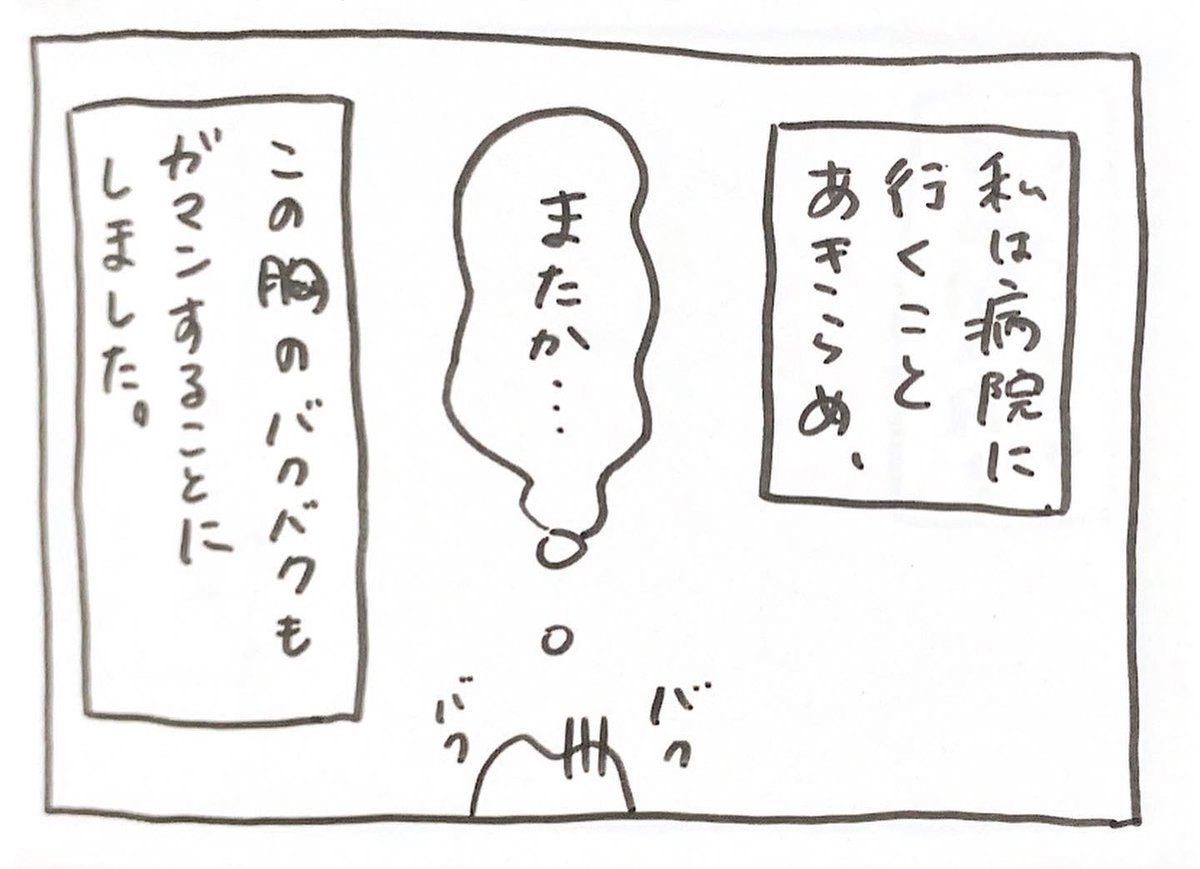 私は病院に
行くこと
あきらめ、
またか…
バク
バク
この胸のバクバクも
ガマンすることに
しました。